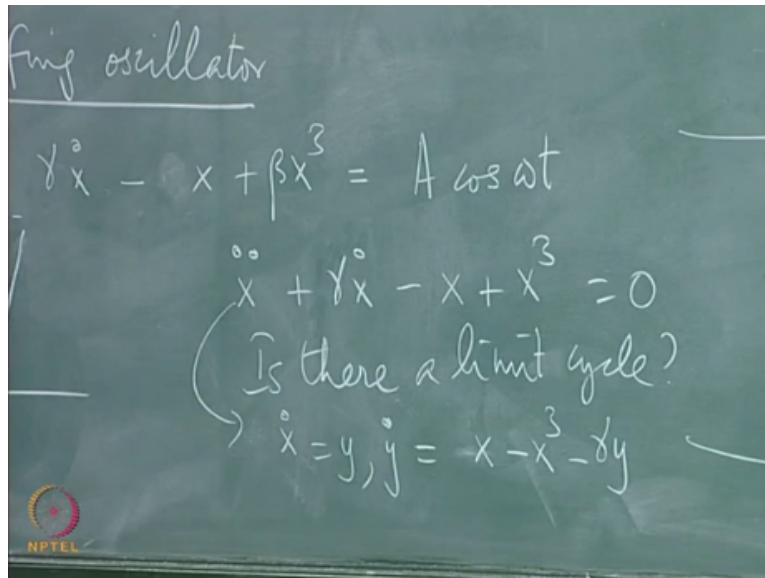 fing oscillator
γẋ - x + βx³ = A cos ωt
ẍ + γẋ - x + x³ = 0
Is there a limit cycle?
ẋ = y, ẏ = x - x³ - γy
NPTEL